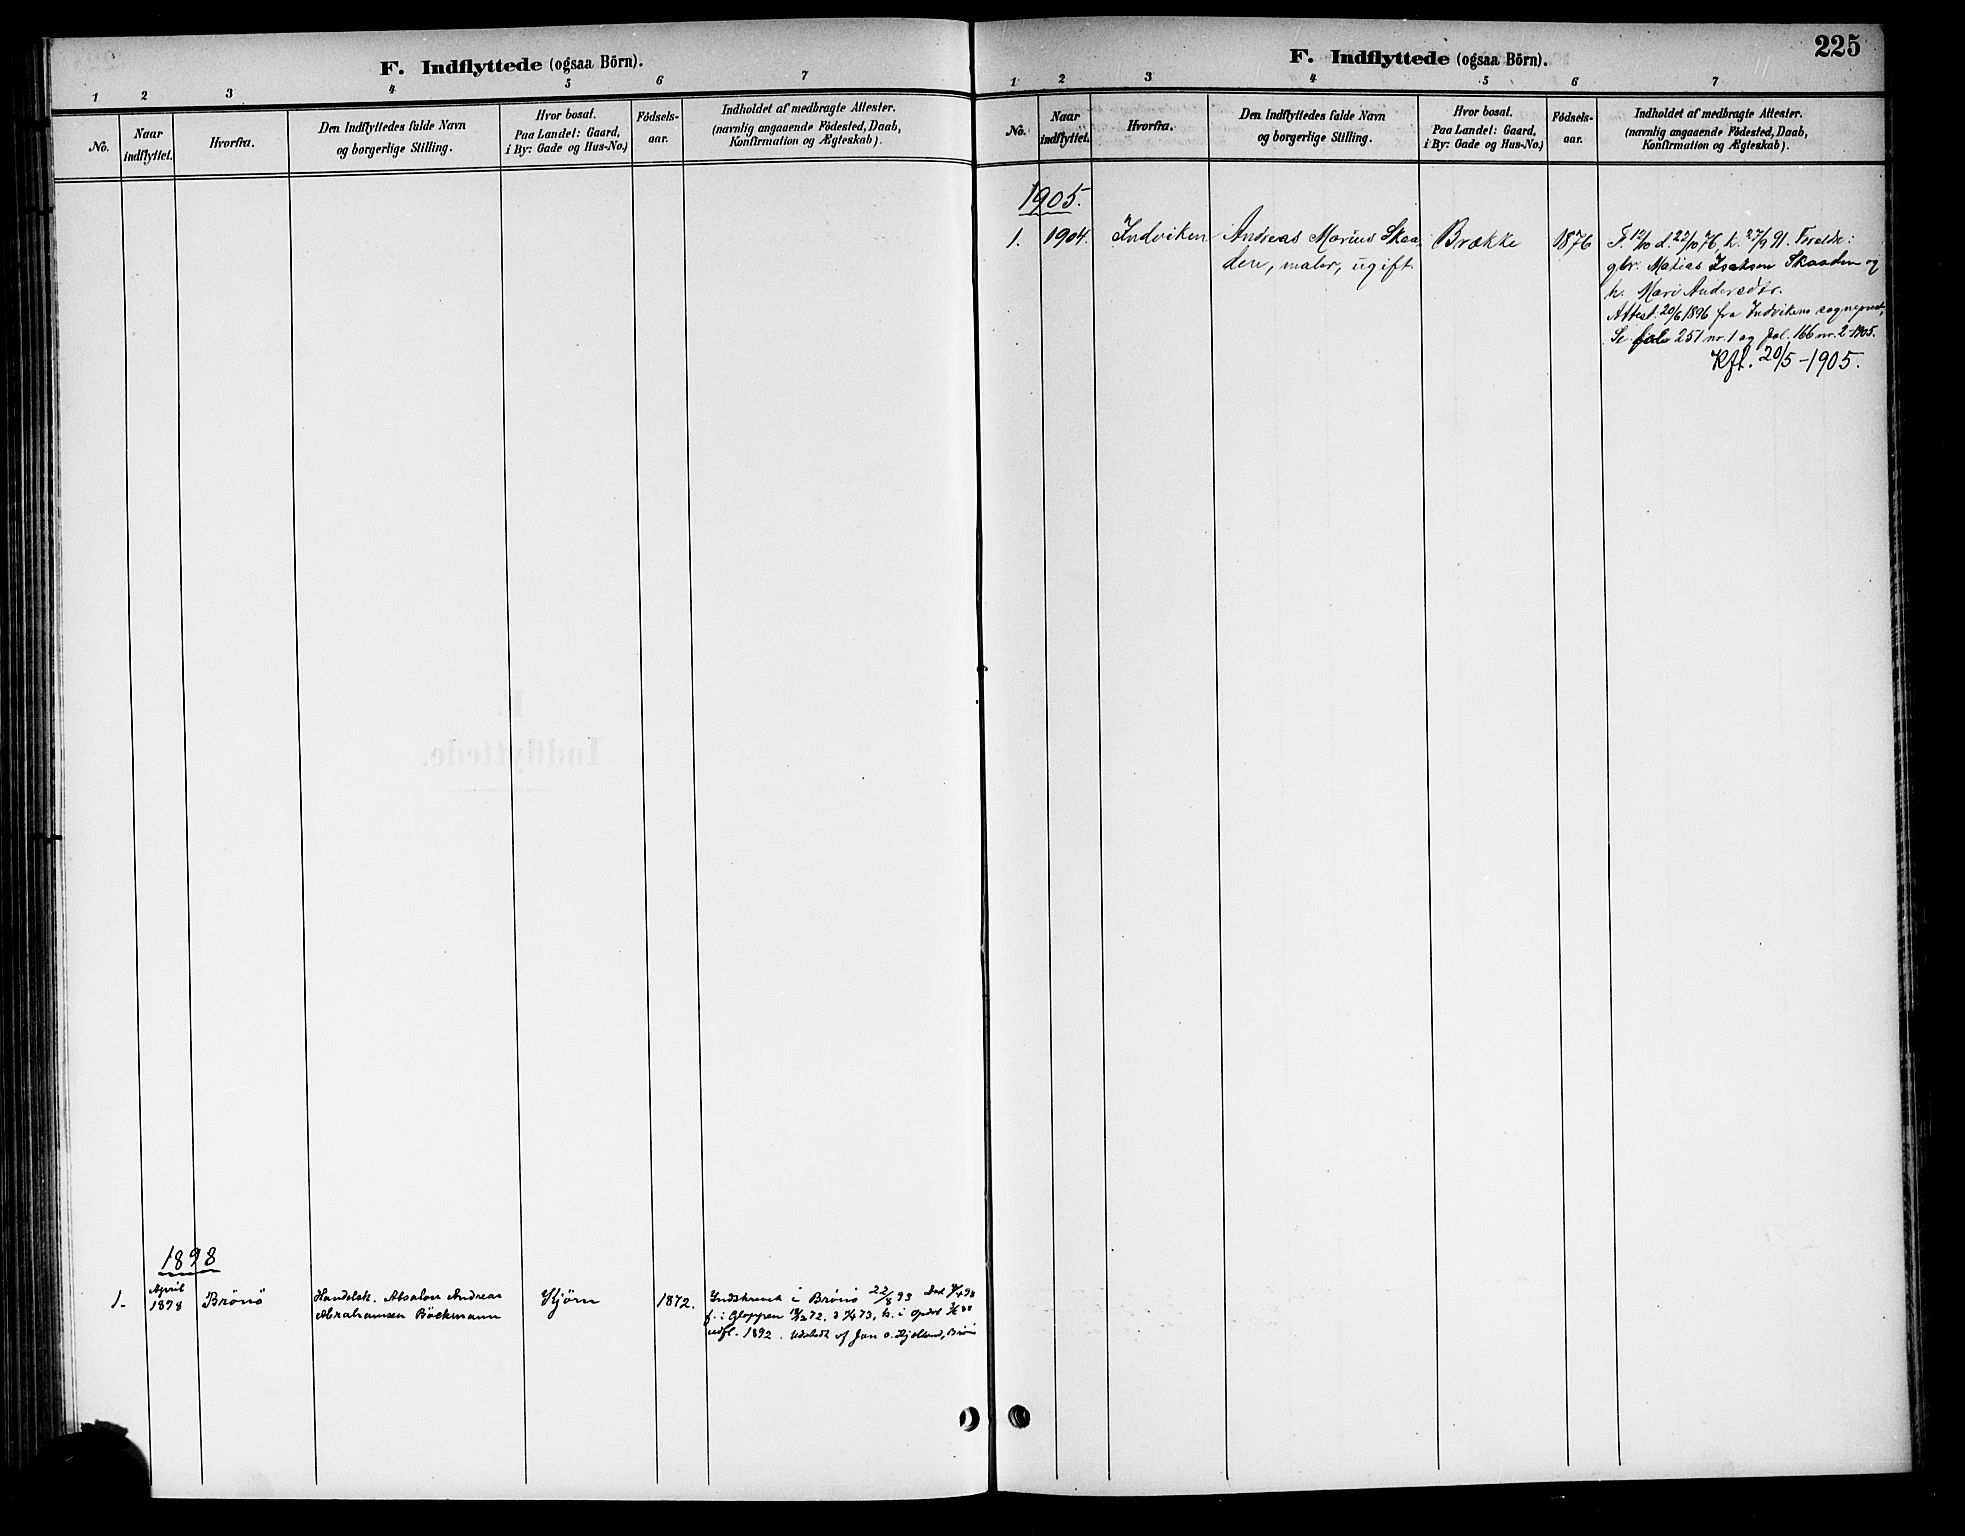 F. Indflyttede (ogsaa Börn).
1 2 3 4 5 6 7
No.
Naar
indflyttet.
Hvorfra.
Den Indflyttedes fulde Navn
og borgerlige Stilling.
Hvor bosat.
Paa Landet: Gaard,
i By: Gade og Hus-No.)
Födsels-
aar.
Indholdet af medbragte Attester.
(navnlig angaaende Födested, Daab,
Konfirmation og Ægteskab).
1898
1.
April
1898
Brönö
Handelsk. Absalon Andreas
Abrahamsen Böckmann
Kjörn
1872.
Indskrevet i Brönö 22/8 93
f. i Gloppen 72, 73, k. i
udfl. 1892. Udstedt af Jan O. Hjelland, Brönö
225
F. Indflyttede (ogsaa Börn).
1 2 3 4 5 6 7
No.
Naar
indflyttet.
Hvorfra.
Den Indflyttedes fulde Navn
og borgerlige Stilling.
Hvor bosat.
Paa Landet: Gaard,
i By: Gade og Hus-No.)
Födsels-
aar.
Indholdet af medbragte Attester.
(navnlig angaaende Födested, Daab,
Konfirmation og Ægteskab).
1905.
1.
1904.
Indviken
Andreas Marius Skaa-
den, maler, ugift.
Brække
1876
F. 12/10 d. 29/10 76, k. 27/9 91. Foreldre:
gbr. Matias Isaksen Skaaden og
h. Mari Andersdtr.
Attest. 20/6 1896 fra Indvikens sogneprest,
Se fol. 251 nr. 1 og fol. 166 nr. 2-1905.
Kfl. 20/5-1905.
F.
Indflyttede.